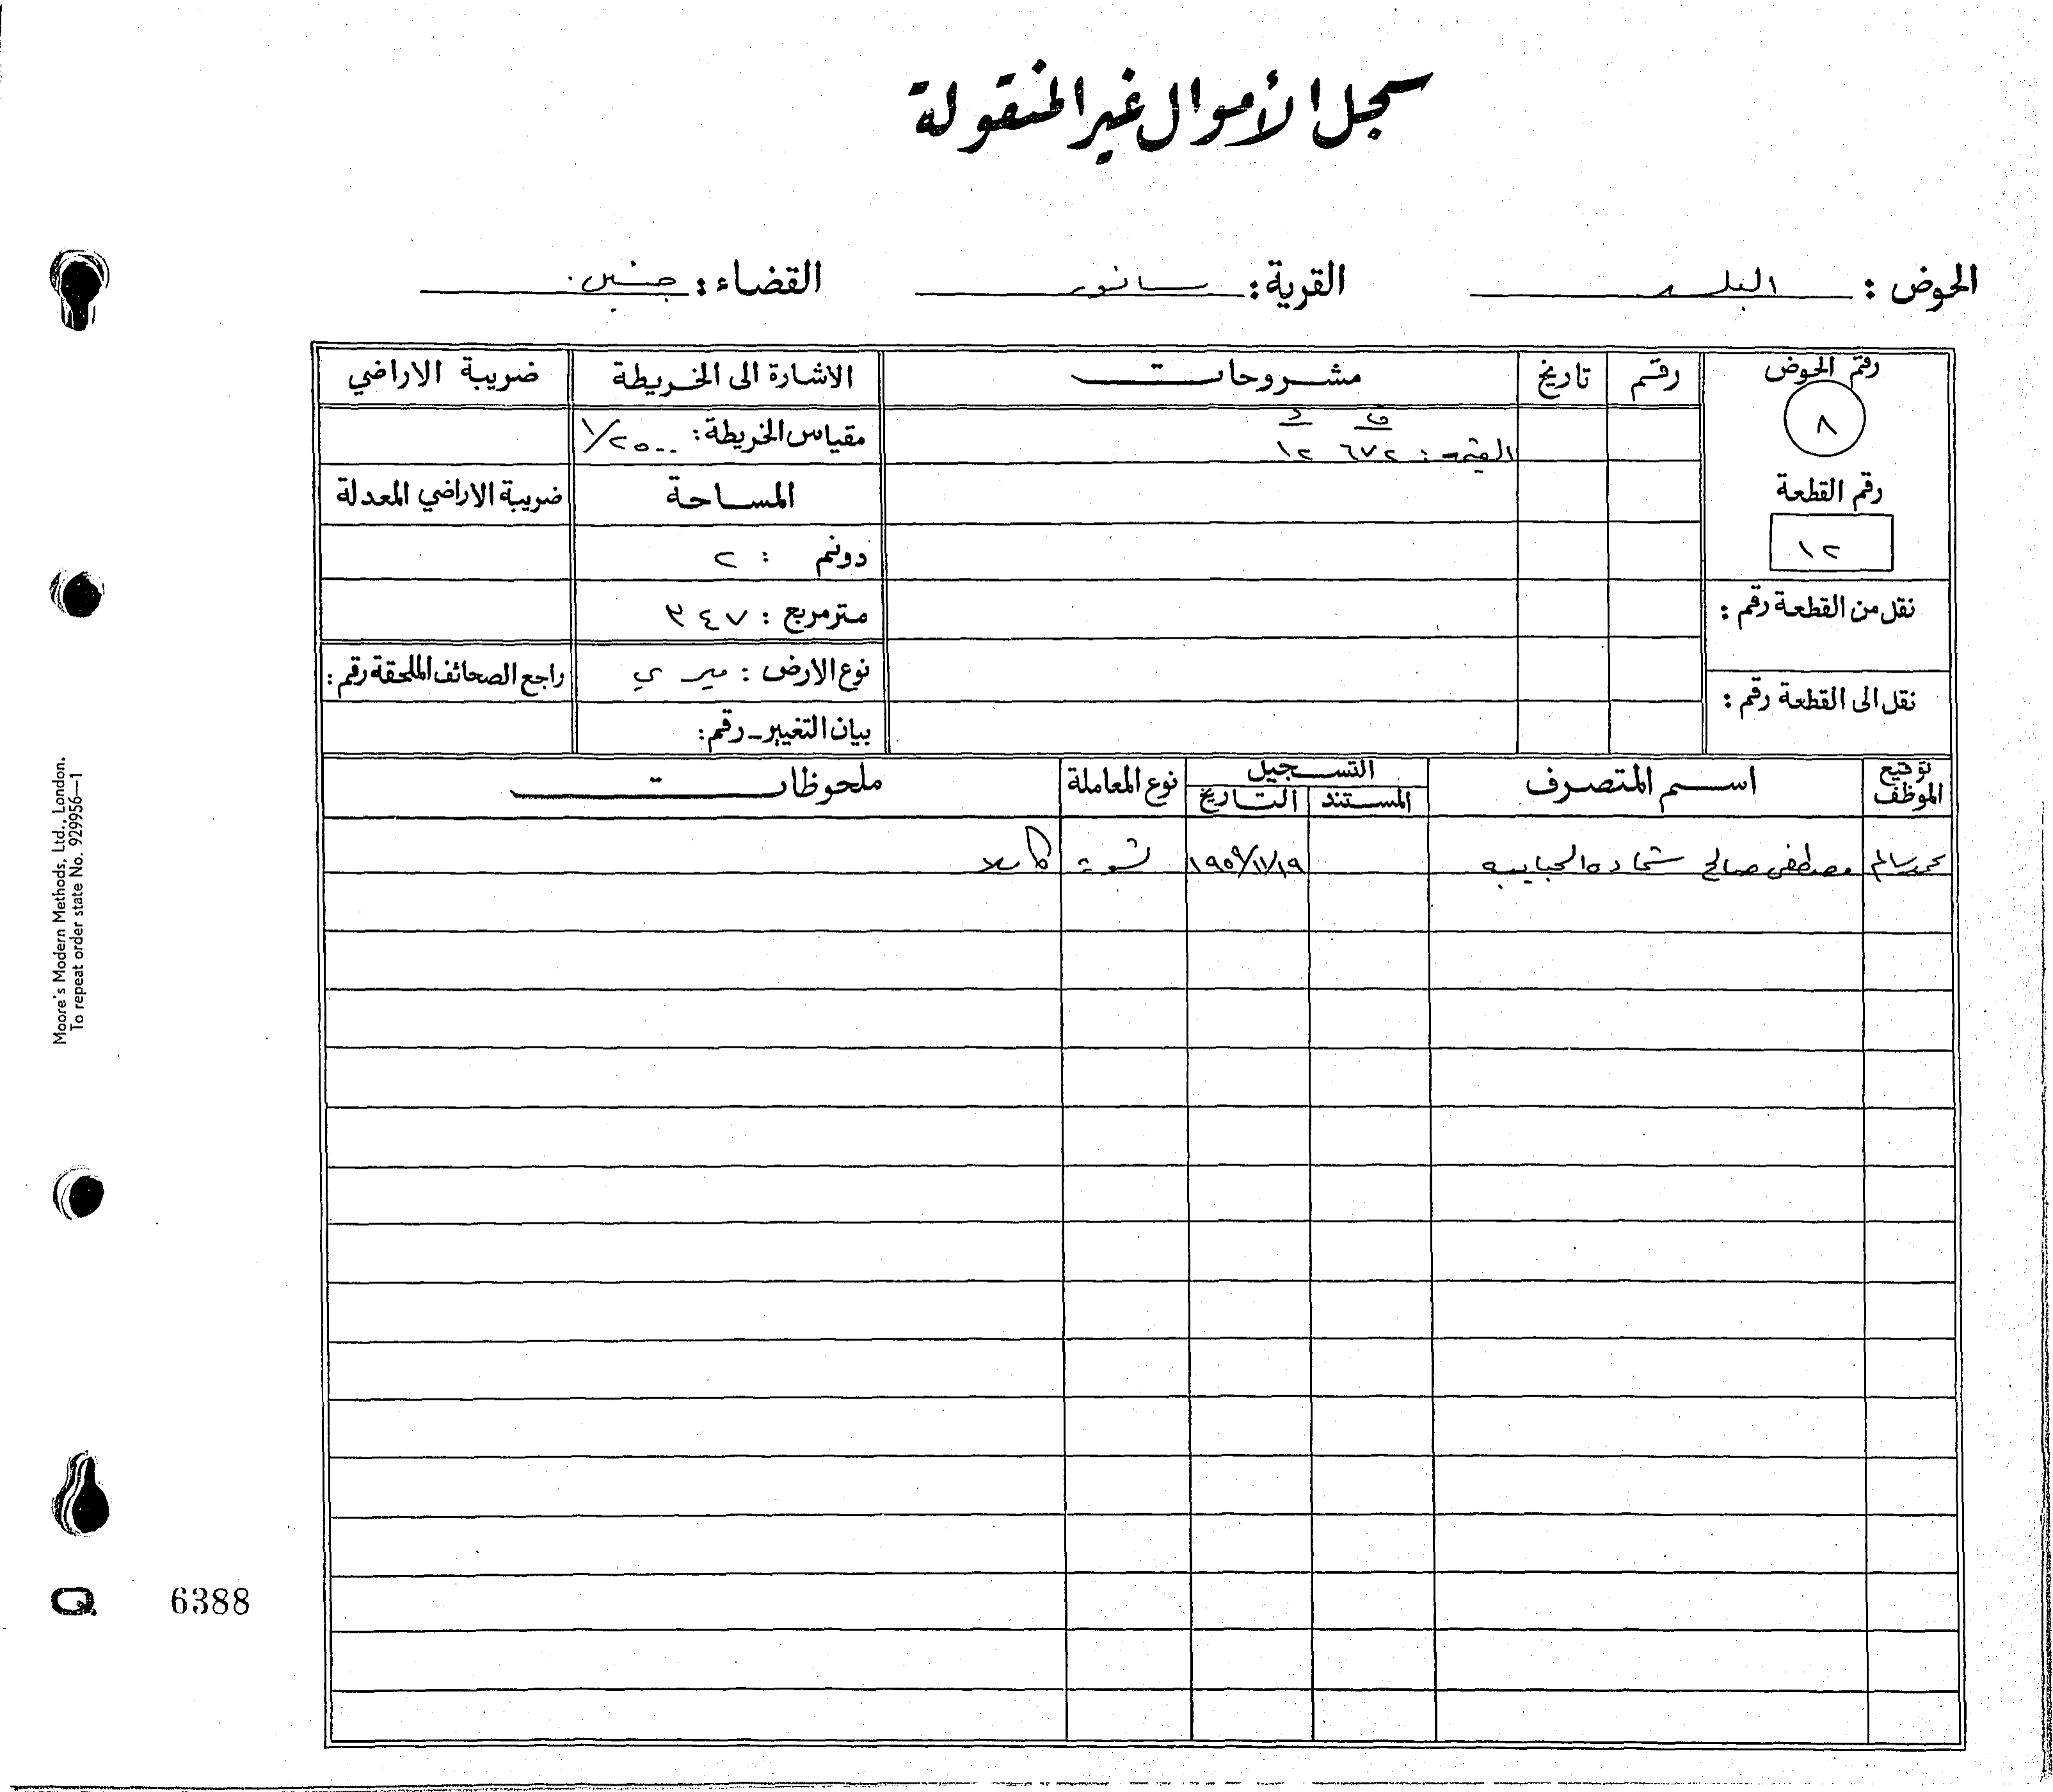 سجل الأموال غير المنقولة
الحوض : البلد القرية : سانور القضاء : جنين
رقم الحوض رقم تاريخ مشروحات الاشارة الى الخريطة ضريبة الاراضي
٨
ف د
القيمة : ٦٧٢ ١٢
مقياس الخريطة : ١/٢٥٠٠
رقم القطعة المساحة ضريبة الاراضي المعدلة
١٢
دونم : ٢
نقل من القطعة رقم : متر مربع : ٣٤٧
نوع الارض : ميري راجع الصحائف الملحقة رقم :
نقل الى القطعة رقم :
بيان التغيير - رقم :
توقيع الموظف اسم المتصرف التسجيل نوع المعاملة ملحوظات
المستند التاريخ
محمد سالم مصطفى صالح شحاده ١٩٥٩/١١/١٩ تسوية كاملا
Moore's Modern Methods, Ltd., London.
To repeat order state No. 929956—1
Q 6388